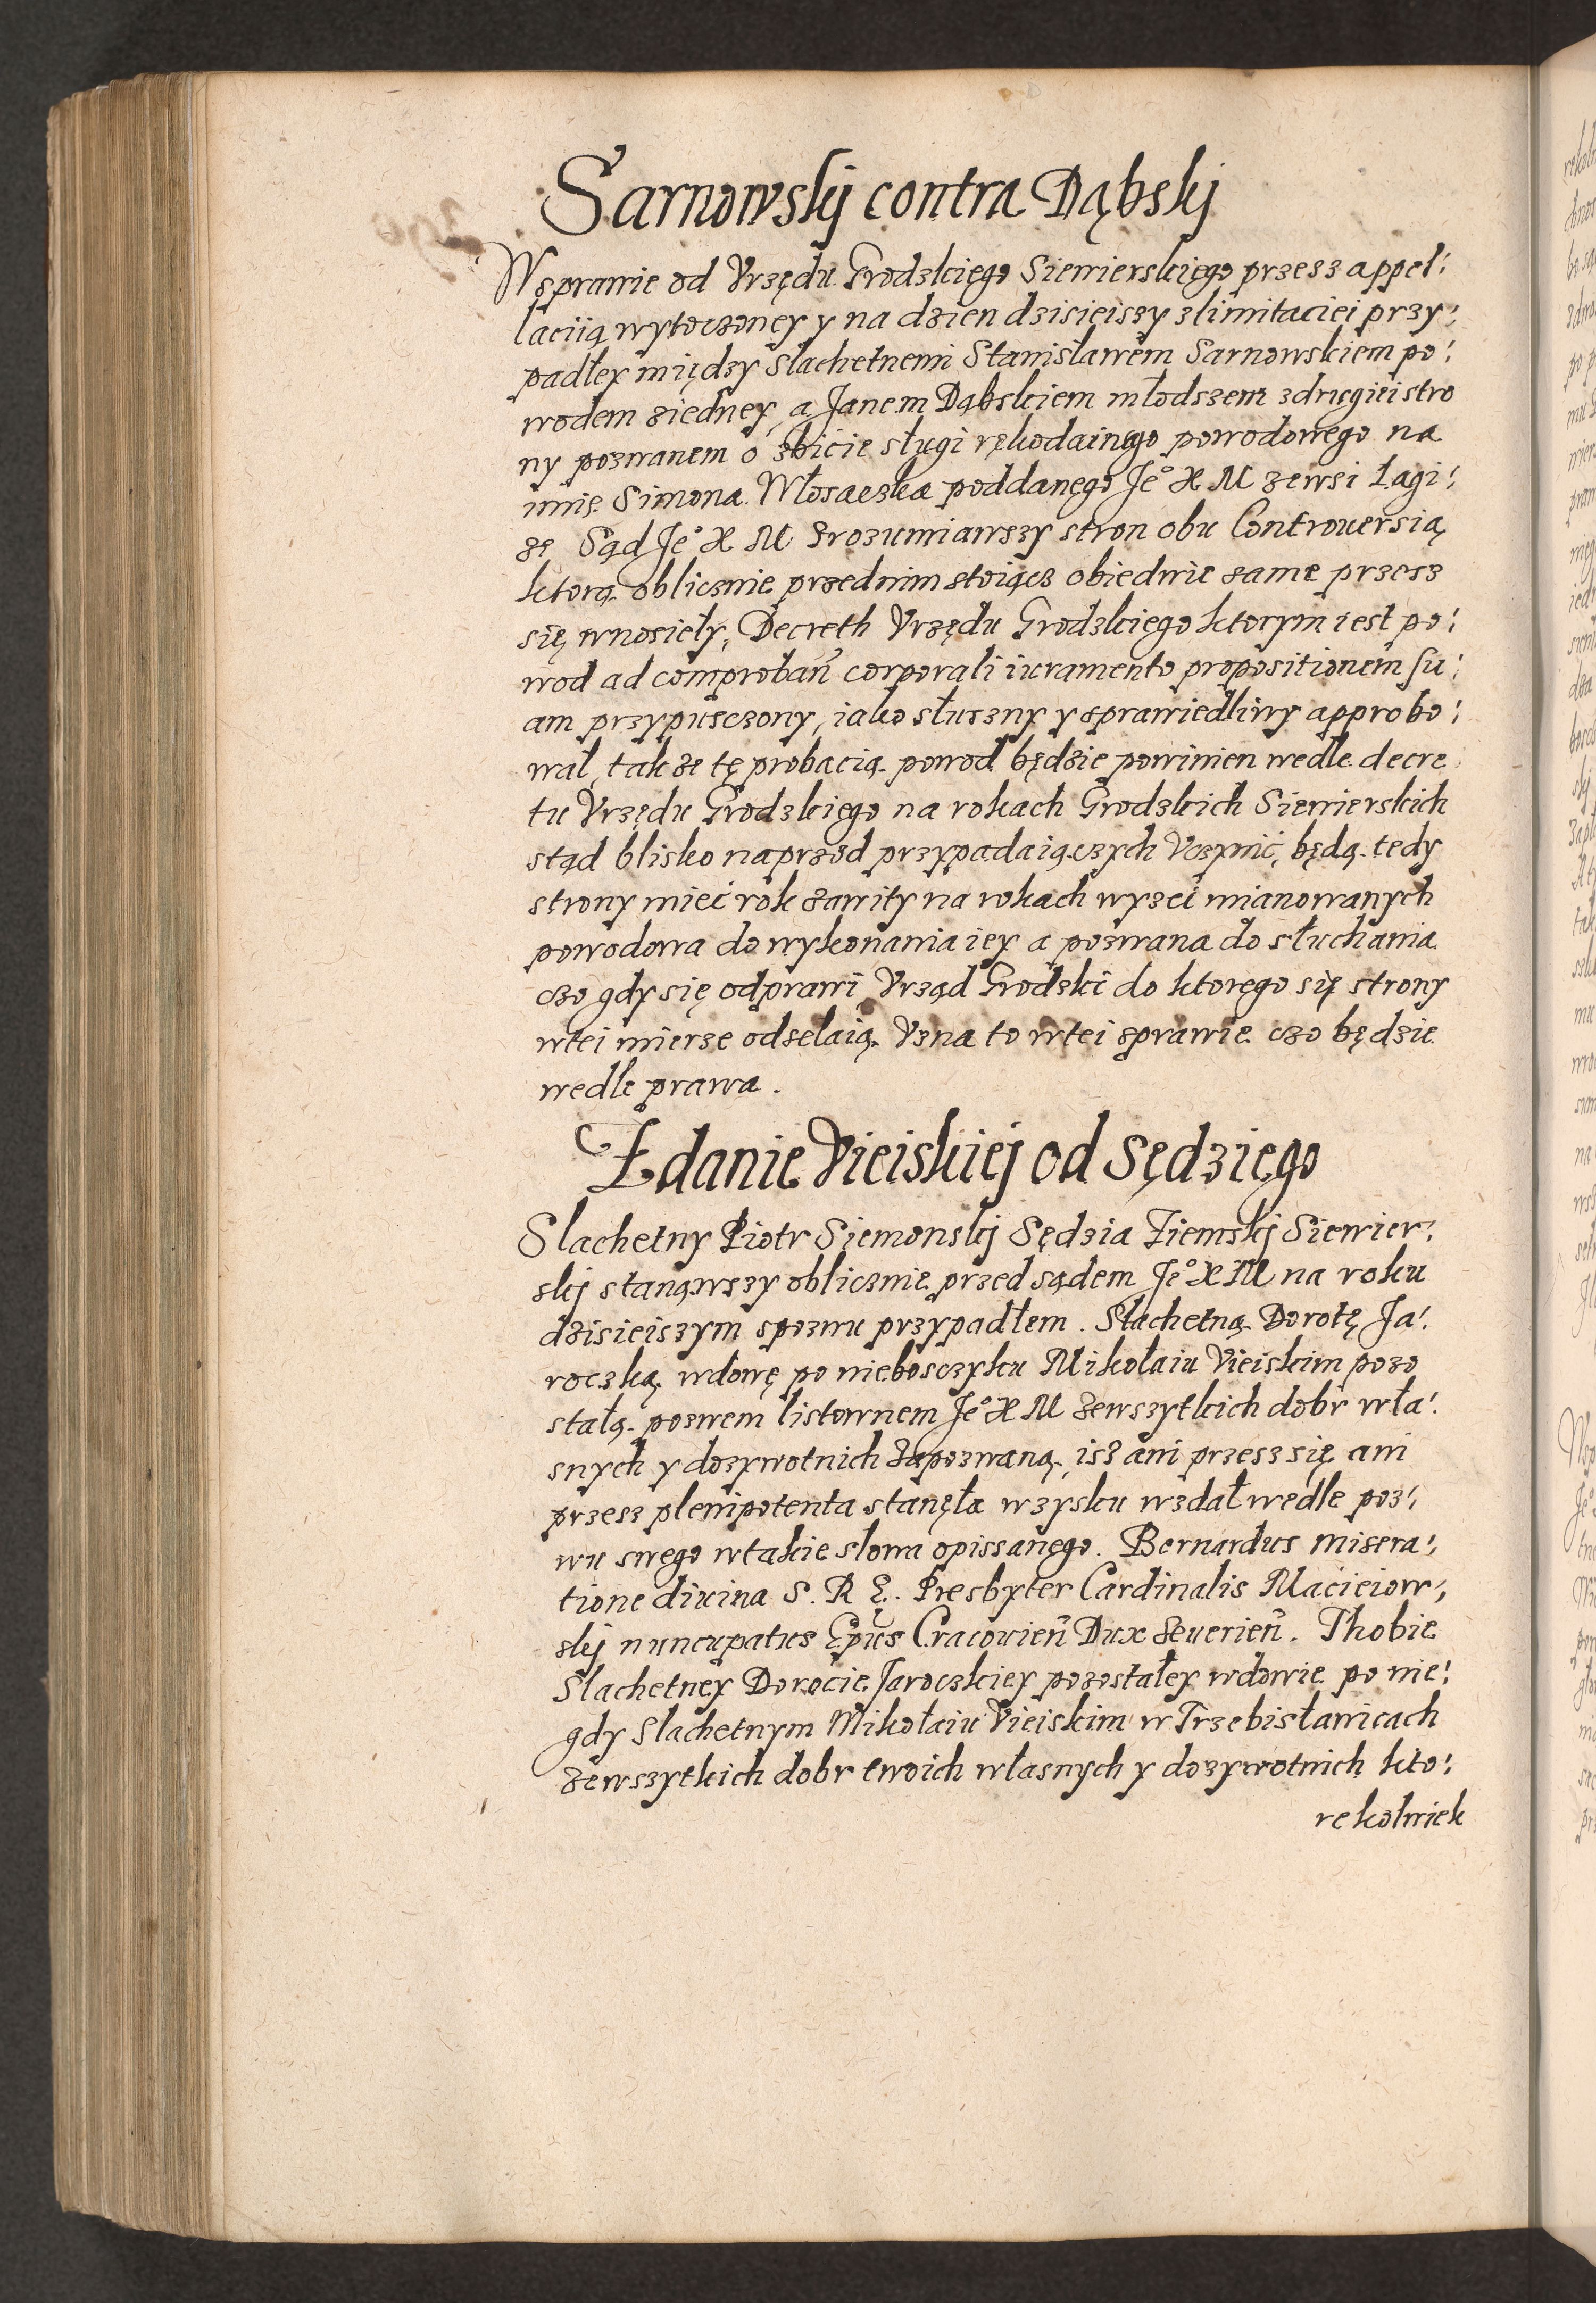 Sarnowskij contra Dąbskij
W sprawie od Vrzędu Grodzkięgo Siewierskięgo przesz appel:
laciią wytoczoney y na dzien dzisieiszy zlimitaciei przy:
padłey między Slachetnemi Stanisławem Sarnowskiem po:
wodem ziedney, a Janem Dąbskiem młodszem zdrugiei stro
ny pozwanem o zbicie sługi rękodainęgo powodowego na
imię Simona Włosaczka poddanęgo Je° X M zewsi Łagi:
szę Sąd Je° X M Zrozumiawszy stron obu Controuersią
ktorą oblicznie przednim stoiącz obiedwie same przesz
się wnosieły, Decreth Vrzędu Grodzkięgo ktorym iest po:
wod ad comprobañ corporali iuramento propositionem su:
am przypusczony, iako słuszny y sprawiedliwy approbo:
wał, tak ze tę probacią powod będzie powinien wedle decre
tu Vrzędu Grodzkięgo na rokach Grodzkich Siewierskich
stąd blisko naprzod przypadaiączych Vczynić, będą tedy
strony mieć rok zawity na rokach wyzei mianowanych
powodowa do wykonania iey a pozwana do słuchania
czo gdy się odprawi Vrząd Grodzki do ktoręgo się strony
wtei mierze odselaią Vzna to wtei sprawie czo będzie
wedle prawa.
Zdanie Vieiskiej od Sędzięgo
Slachetny Piotr Siemonskij Sędzia Ziemskij Siewier:
skij stanąwszy oblicznie przed sądem Je° X M na roku
dzisieiszym spozwu przypadłem. Slachetną Dorotę Ja:
roczką wdowę po nieboszczyku Mikołaiu Vieiskim pozo
stałą pozwem listownem Je° X M zewszytkich dobr wła:
snych y dozywotnich zapozwaną, isz ani przesz się ani
przesz plenipotenta stanęła wzysku wzdał wedle poz:
wu swego wtakie słowa opissanęgo. Bernardus misera:
tione diuina S. R. E. Presbyter Cardinalis Macieiow:
skij nuncupatus Epũs Cracouieñ Dux Seuerieñ. Thobie
Slachetney Dorocie Jaroczkiey pozostałey wdowie po nie:
gdy Slachetnym Mikołaiu Vieiskim w Trzebisławicach
zewszytkich dobr twoich własnych y dozywotnich kto:
rekolwiek